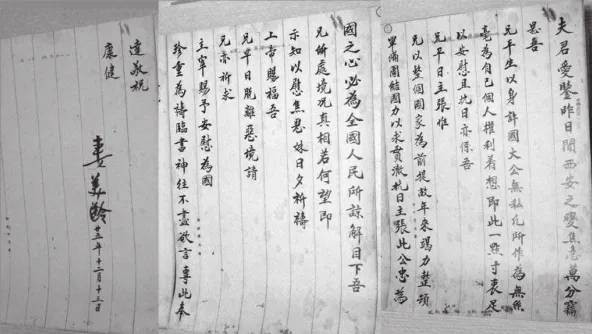 夫君愛鑒昨日聞西安之變焦急萬分竊
思吾
兄平生以身許國大公無私凡所作為無絲
毫為自己個人權利着想即此一點寸衷足
以安慰且抗日亦係吾
兄平日主張惟
兄以整個國家為前提故年來竭力整頓
軍備團結國力以求貫澈抗日主張此公忠為
國之心必為全國人民所諒解目下吾
兄所處境況真相若何望即
示知以慰焦思妹日夕祈禱
上帝賜福吾
兄早日脫離惡境請
兄亦祈求
主宰賜予安慰為國
珍重為禱臨書神往不盡欲言專此奉
達敬祝
康健
妻美齡 廿五年十二月十三日